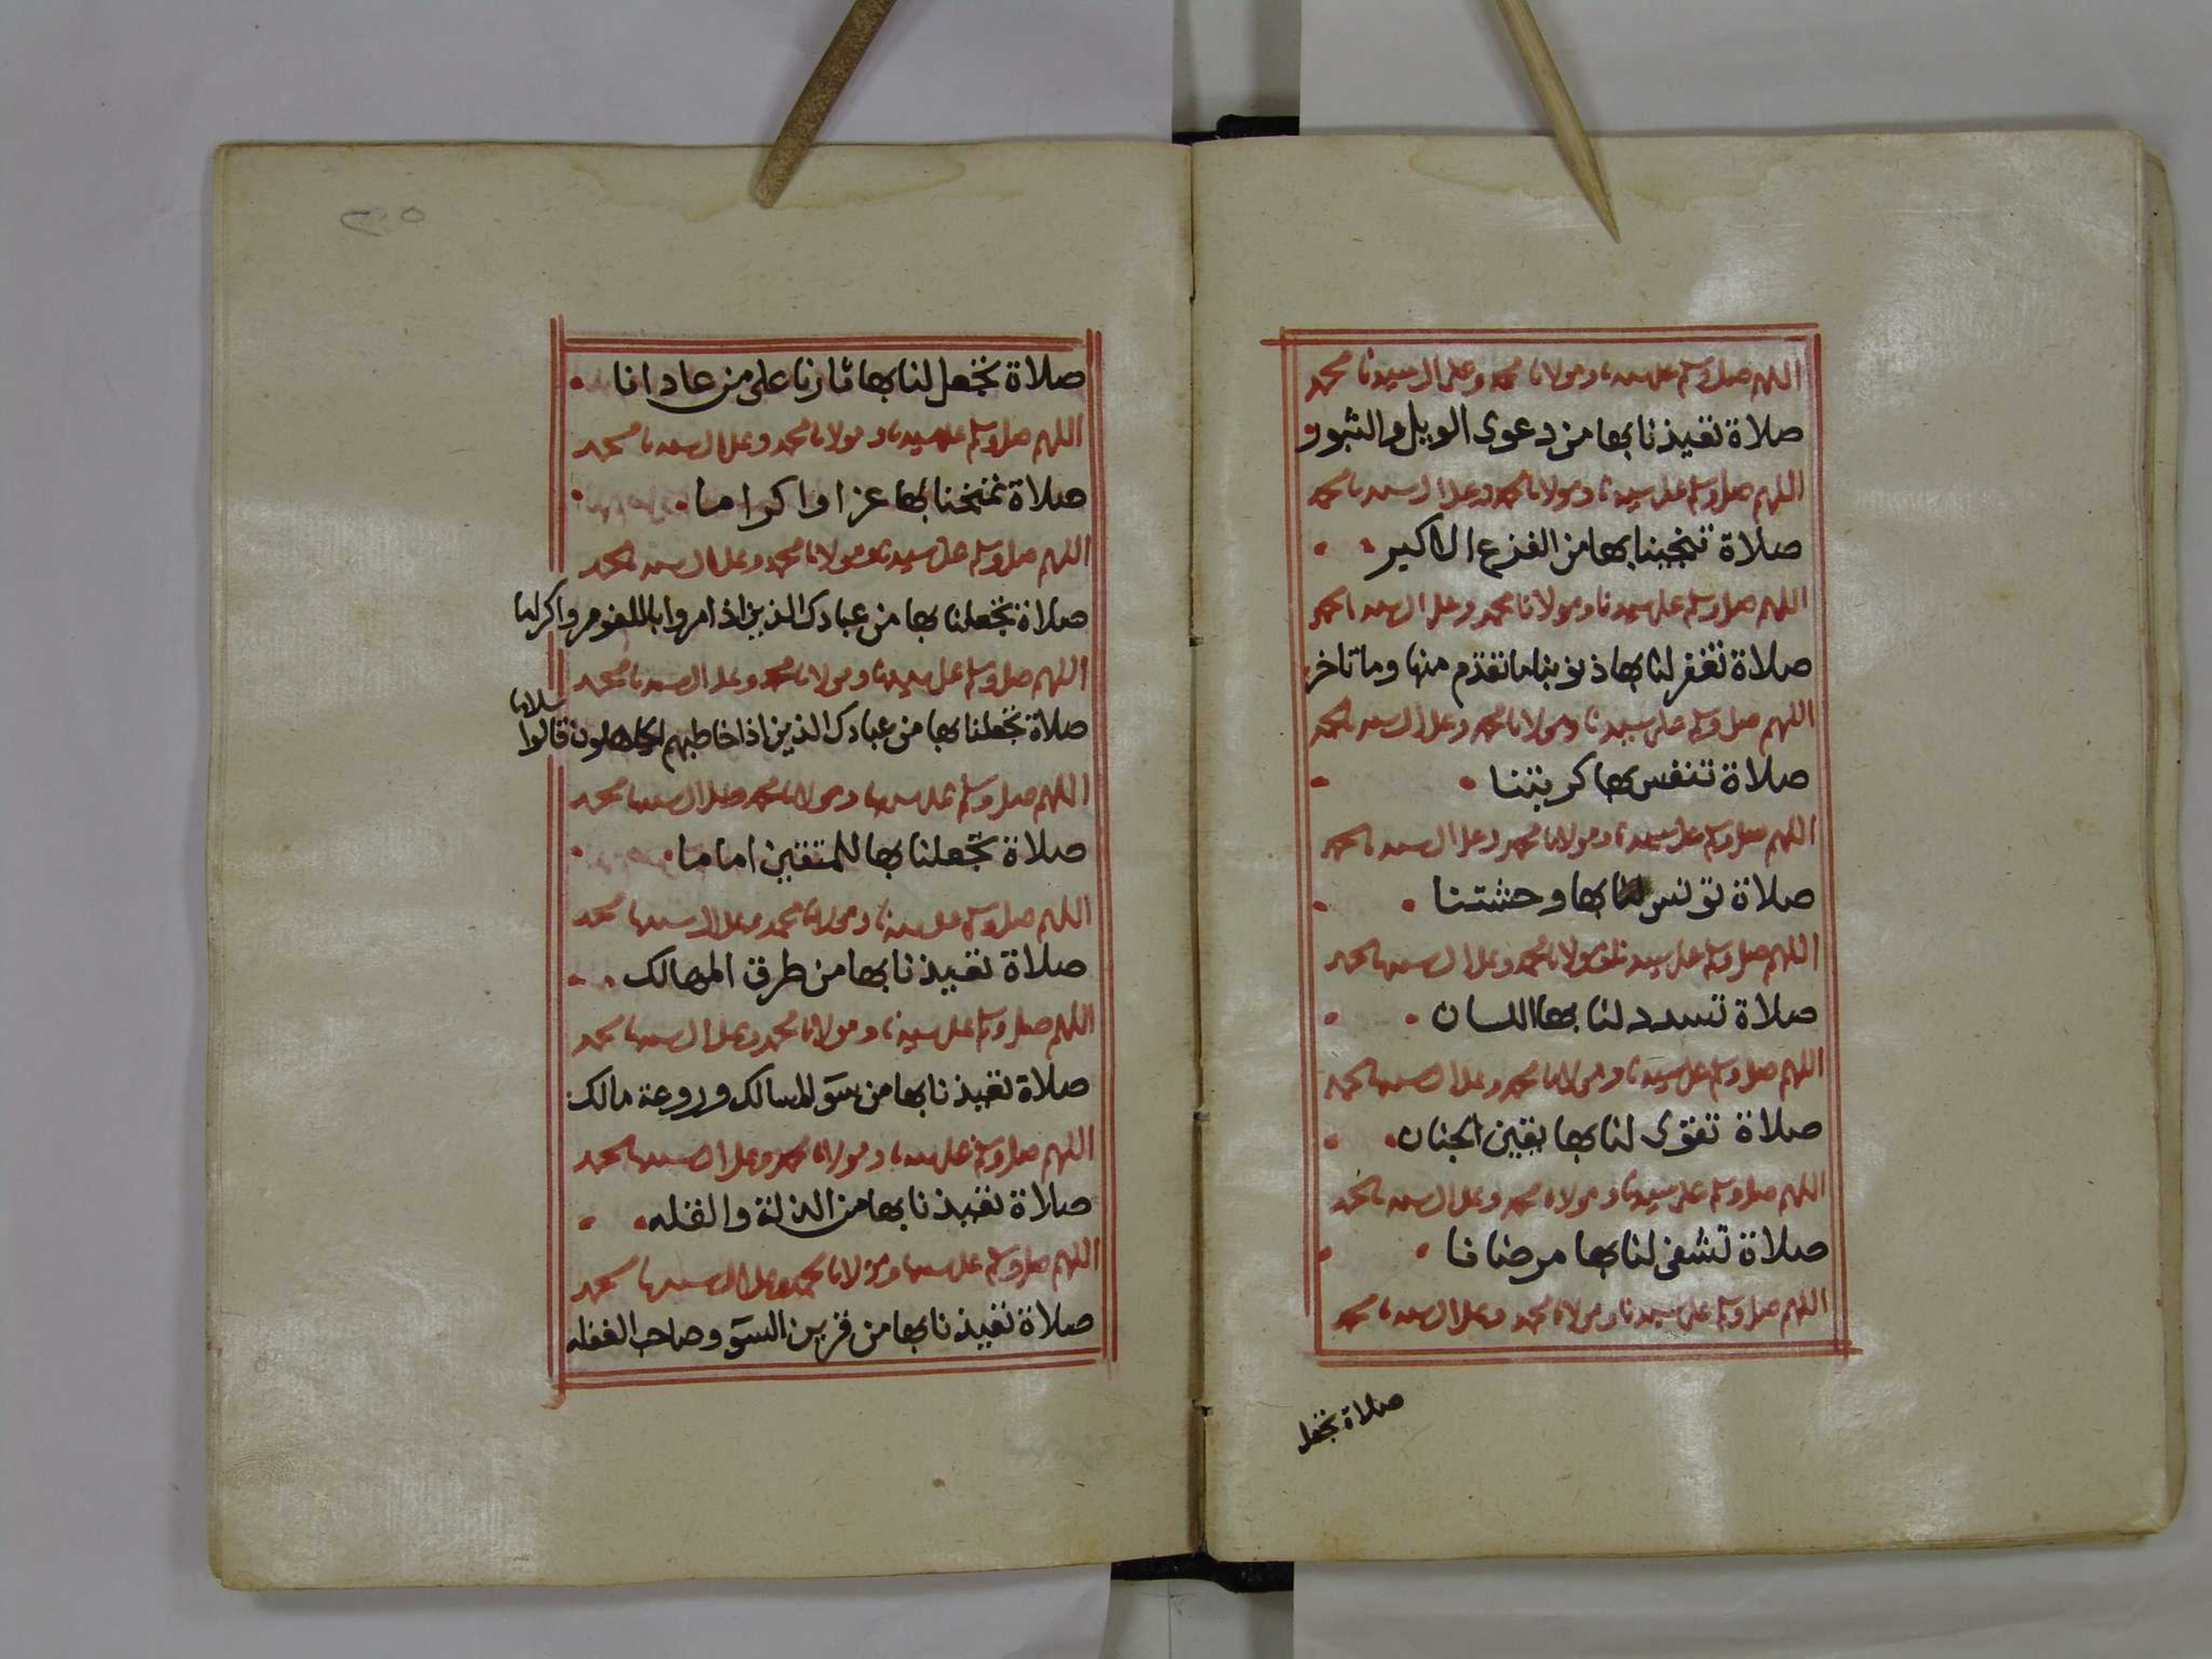 اللهم صل وسلم على سيدنا ومولانا محمد وعلى ال سيدنا محمد
صلاة تعيذنا بها من دعوى الويل والثبور
اللهم صل وسلم على سيدنا ومولانا محمد وعلى ال سيدنا محمد
صلاة تنجينا بها من الفزع الاكبر
اللهم صل وسلم على سيدنا ومولانا محمد وعلى ال سيدنا محمد
صلاة تغفر لنا بها ذنوبنا ما تقدم منها وما تاخر
اللهم صل وسلم على سيدنا ومولانا محمد وعلى ال سيدنا محمد
صلاة تنفس بها كربتنا
اللهم صل وسلم على سيدنا ومولانا محمد وعلى ال سيدنا محمد
صلاة تونس لنا بها وحشتنا
اللهم صل وسلم على سيدنا ومولانا محمد وعلى ال سيدنا محمد
صلاة تسدد لنا بها اللسان
اللهم صل وسلم على سيدنا ومولانا محمد وعلى ال سيدنا محمد
صلاة تقوى لنا بها يقين الجنان
اللهم صل وسلم على سيدنا ومولانا محمد وعلى ال سيدنا محمد
صلاة تشفى لنا بها مرضانا
اللهم صل وسلم على سيدنا ومولانا محمد وعلى ال سيدنا محمد
صلاة تجعل
صلاة تجعل لنا بها ثارنا على من عادانا
اللهم صل وسلم على سيدنا ومولانا محمد وعلى ال سيدنا محمد
صلاة تمنحنا بها عزا واكراما
اللهم صل وسلم على سيدنا ومولانا محمد وعلى ال سيدنا محمد
صلاة تجعلنا بها من عبادك الذين اذا مروا باللغو مروا كراما
اللهم صل وسلم على سيدنا ومولانا محمد وعلى ال سيدنا محمد
صلاة تجعلنا بها من عبادك الذين اذا خاطبهم الجاهلون قالوا سلاما
اللهم صل وسلم على سيدنا ومولانا محمد وعلى ال سيدنا محمد
صلاة تجعلنا بها للمتقين اماما
اللهم صل وسلم على سيدنا ومولانا محمد وعلى ال سيدنا محمد
صلاة تعيذنا بها من طرق المهالك
اللهم صل وسلم على سيدنا ومولانا محمد وعلى ال سيدنا محمد
صلاة تعيذنا بها من سوٓ المسالك وروعة مالك
اللهم صل وسلم على سيدنا ومولانا محمد وعلى ال سيدنا محمد
صلاة تعيذنا بها من الذلة والقله
اللهم صل وسلم على سيدنا ومولانا محمد وعلى ال سيدنا محمد
صلاة تعيذنا بها من قرين السوٓ وصاحب الغفله